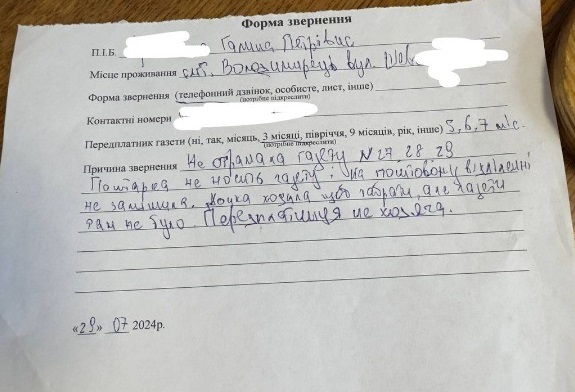 Форма звернення
П.І.Б. Галина Петрівна
Місце проживання смт. Володимирець вул.
Форма звернення (телефонний дзвінок, особисте, лист, інше)
(потрібне підкреслити)
Контактні номери
Передплатник газети (ні, так, місяць, 3 місяці, півріччя, 9 місяців, рік, інше) 5, 6, 7 міс.
(потрібне підкреслити)
Причина звернення Не отримала газету N 27, 28 29
Поштарка не носить газету; на поштовому відділенні
не залишила. Дочка ходила щоб забрати, але газети
там не було. Передплатниця не ходяча.
«29» 07 2024р.